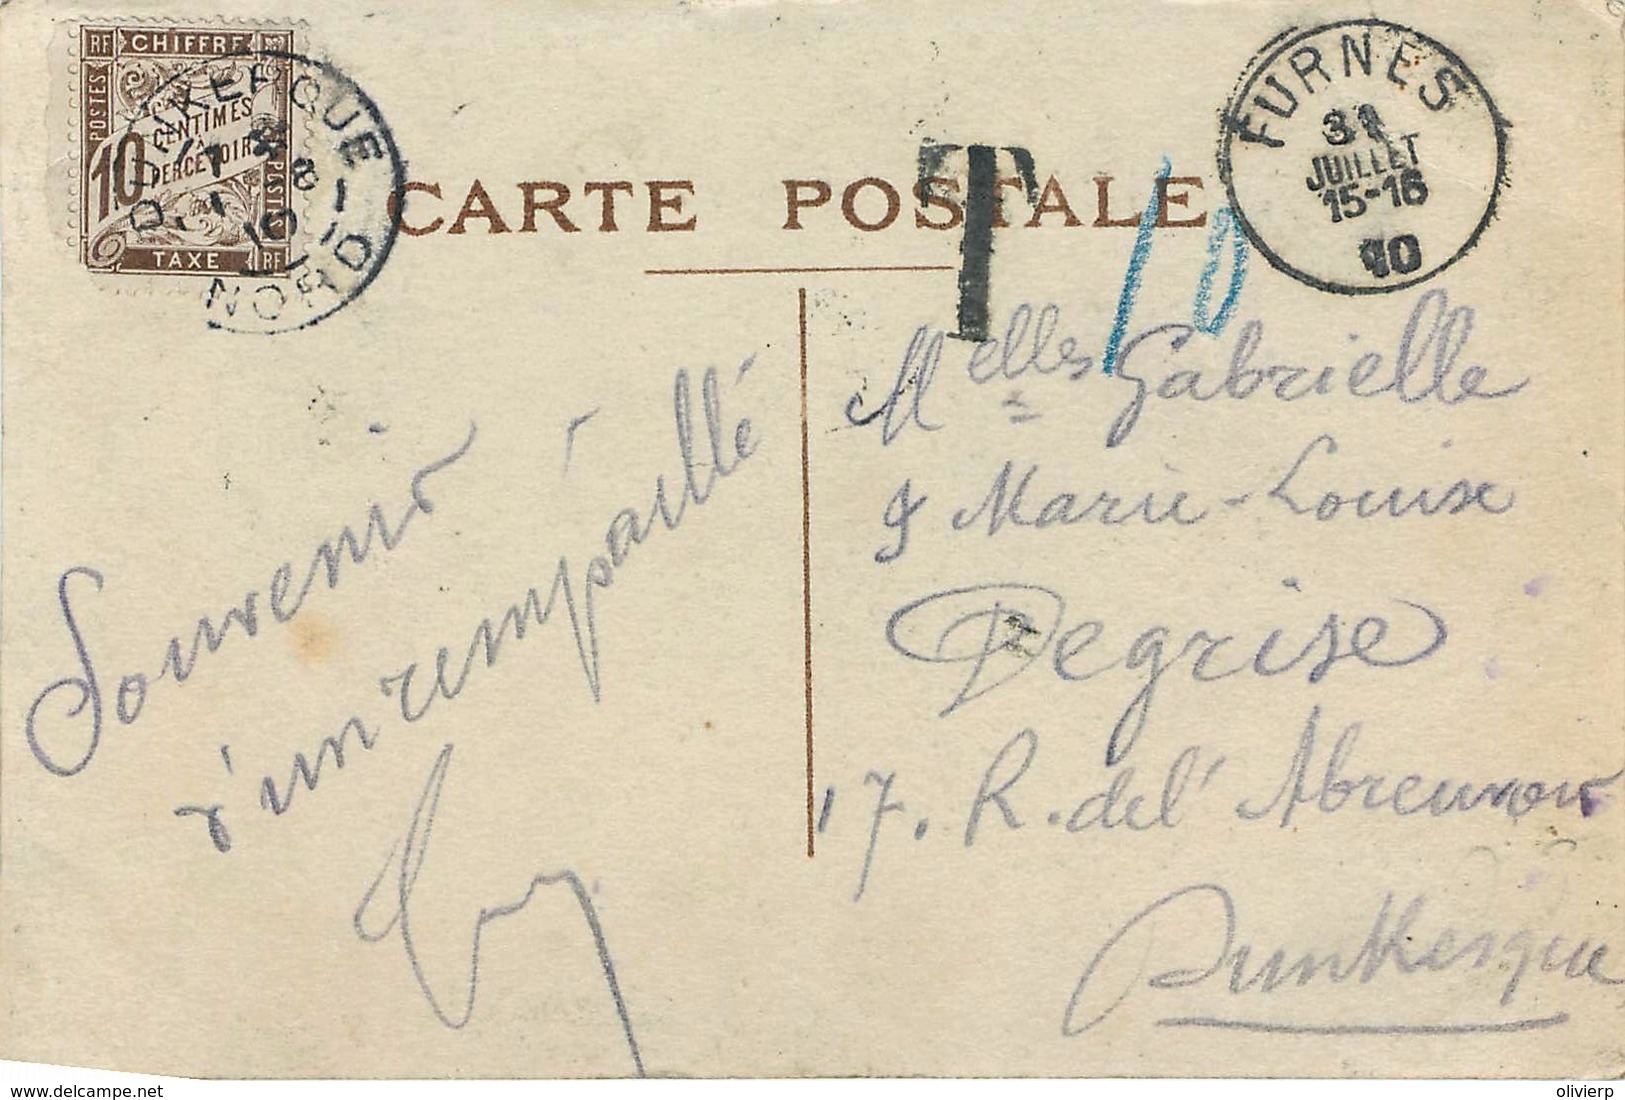 RF CHIFFRE
POSTES
10 CENTIMES
À
PERCEVOIR
POSTES
TAXE RF
DUNKERQUE
NORD
CARTE POSTALE
T
10
FURNES
31
JUILLET
15-16
10
Souvenir
d'un rempaillé
Melles Gabrielle
& Marie-Louise
Degrise
17. R. de l'Abreuvoir
Dunkerque
www.delcampe.net
olivierp